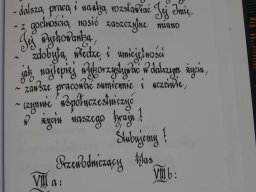 - dalszą pracą i nauką rozsławiać Jej Imię,
- z godnością nosić zaszczytne miano
Jej wychowanka,
- zdobytą wiedzę i umiejętności
jak najlepiej wykorzystywać w dalszym życiu,
- zawsze pracować sumiennie i uczciwie,
- czynnie współuczestniczyć
w życiu naszego kraju!
Ślubujemy!
Przewodniczący klas
VIII a: VIII b: